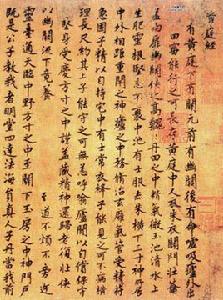 黃庭經
上有黃庭下有關元前有幽闕後有命門噓吸廬外出
入丹田審能行之可長存黃庭中人衣朱衣關門壯籥
蓋兩扉幽闕俠之高巍巍丹田之中精氣微玉池清水上
生肥靈根堅志不衰中池有士服赤朱橫下三寸神所居
中外相距重閉之神廬之中務脩治玄膺氣管受精符
急固子精以自持宅中有士常衣絳子能見之可不病橫
理長尺約其上子能守之可無恙呼噏廬間以自償保守
完堅身受慶方寸之中謹蓋藏精神還歸老復壯俠
以幽闕流下竟養 至道不煩不旁迕
靈臺通天臨中野方寸之中至關下玉房之中神門戶
既是公子教我者明堂四達法海員真人子丹當我前